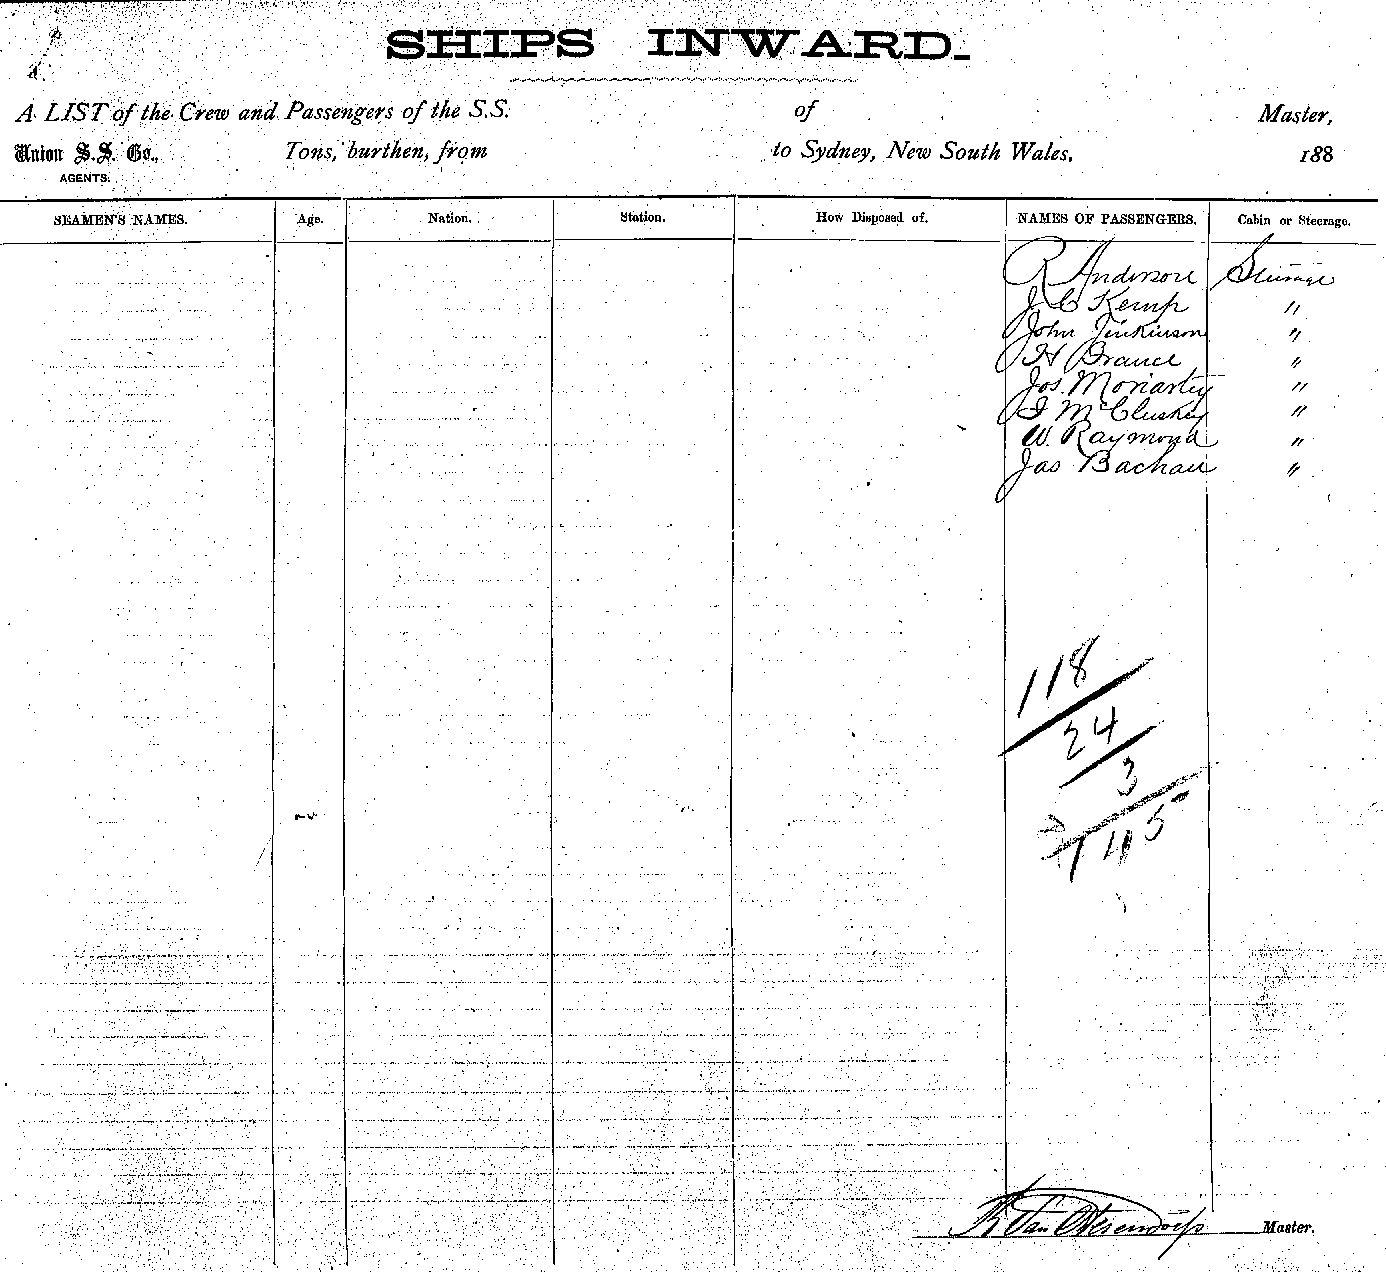 SHIPS INWARD.
A LIST of the Crew and Passengers of the S.S. of Master,
Union S.S. Co., Tons, burthen, from to Sydney, New South Wales, 188
AGENTS.
SEAMEN'S NAMES. Age. Nation. Station. How Disposed of. NAMES OF PASSENGERS. Cabin or Steerage.
R Anderson Steerage
J C Kemp "
John Jenkinson "
H "
Jos. Moriarty "
McCluskey "
W. Raymond "
Jas "
118
24
3
145
R Van Master.